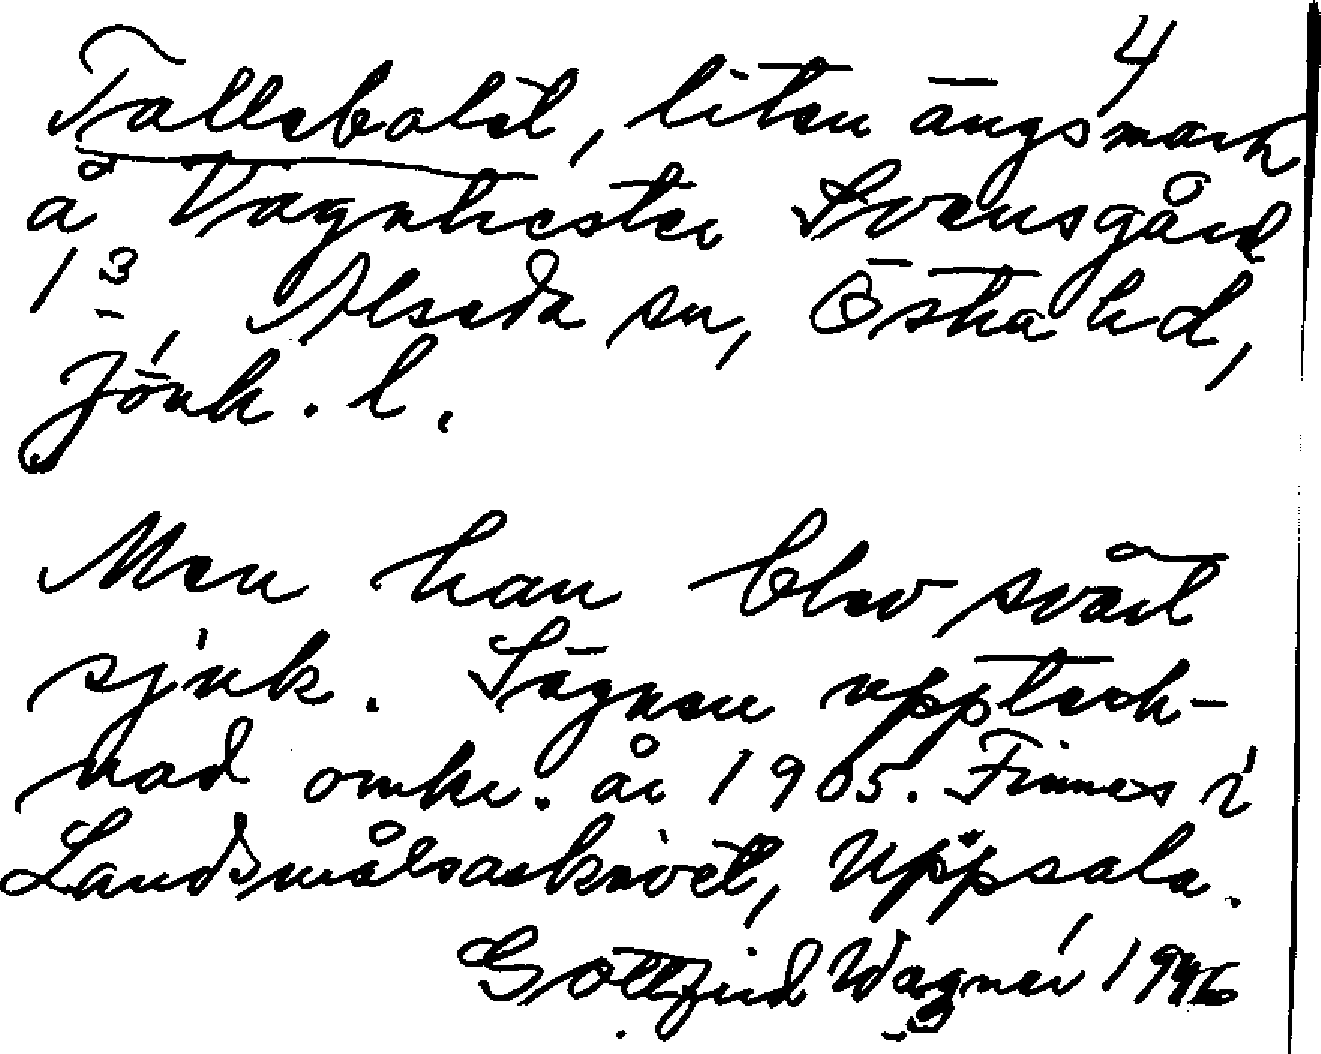 4
Tallebolet, liten ängsmark
å Vagnhester Svensgård
1 3, Alseda sn, Östra hd,
Jönk. l.
Men han blev svårt
sjuk. Sägnen uppteck-
nad omkr. år 1905. Finnes i
Landsmålsarkivet, Uppsala.
Gottfrid Wagnér 1946